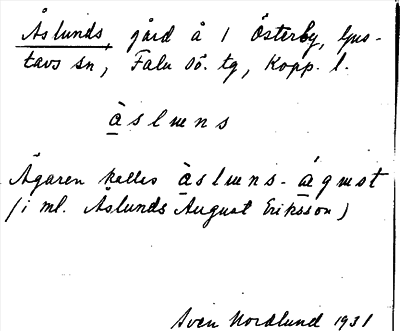 Åslunds, gård å 1 Österby, Gus-
tavs sn, Falu Sö. tg, Kopp. l.
àslɯns
Ägaren kallas àslɯns-ágɯst
(i ml. Åslunds August Eriksson)
Sven Nordlund 1931